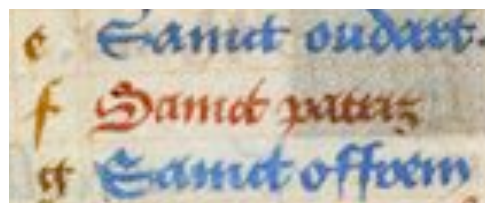 e Sainct oudart.
f Sainct patriz
g Sainct offoem